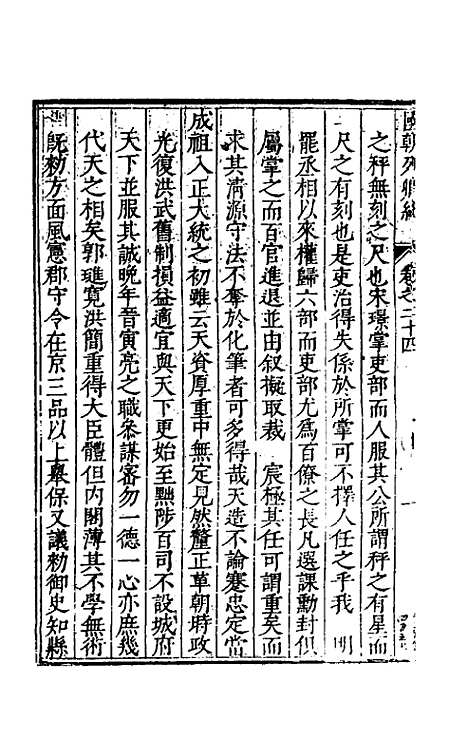 國朝列卿紀 卷之二十四
之秤無刻之尺也宋璟掌吏部而人服其公所謂秤之有星而
尺之有刻也是吏治得失係於所掌可不擇人任之乎我 明
罷丞相以來權歸六部而吏部尤為百僚之長凡選課勳封俱
屬掌之而百官進退並由叙擬取裁 宸極其任可謂重矣而
求其清源守法不牽於化筆者可多得哉天造不論蹇忠定當
成祖入正大統之初雖云天資厚重中無定見然釐正革朝時政
光復洪武舊制損益適宜與天下更始至黜陟百司不設城府
天下並服其誠晚年晉寅亮之職參謀審勿一德一心亦庶幾
代天之相矣郭璡寬洪簡重得大臣體但内閣薄其不學無術
既勑方面風憲郡守令在京三品以上舉保又議勑御史知縣